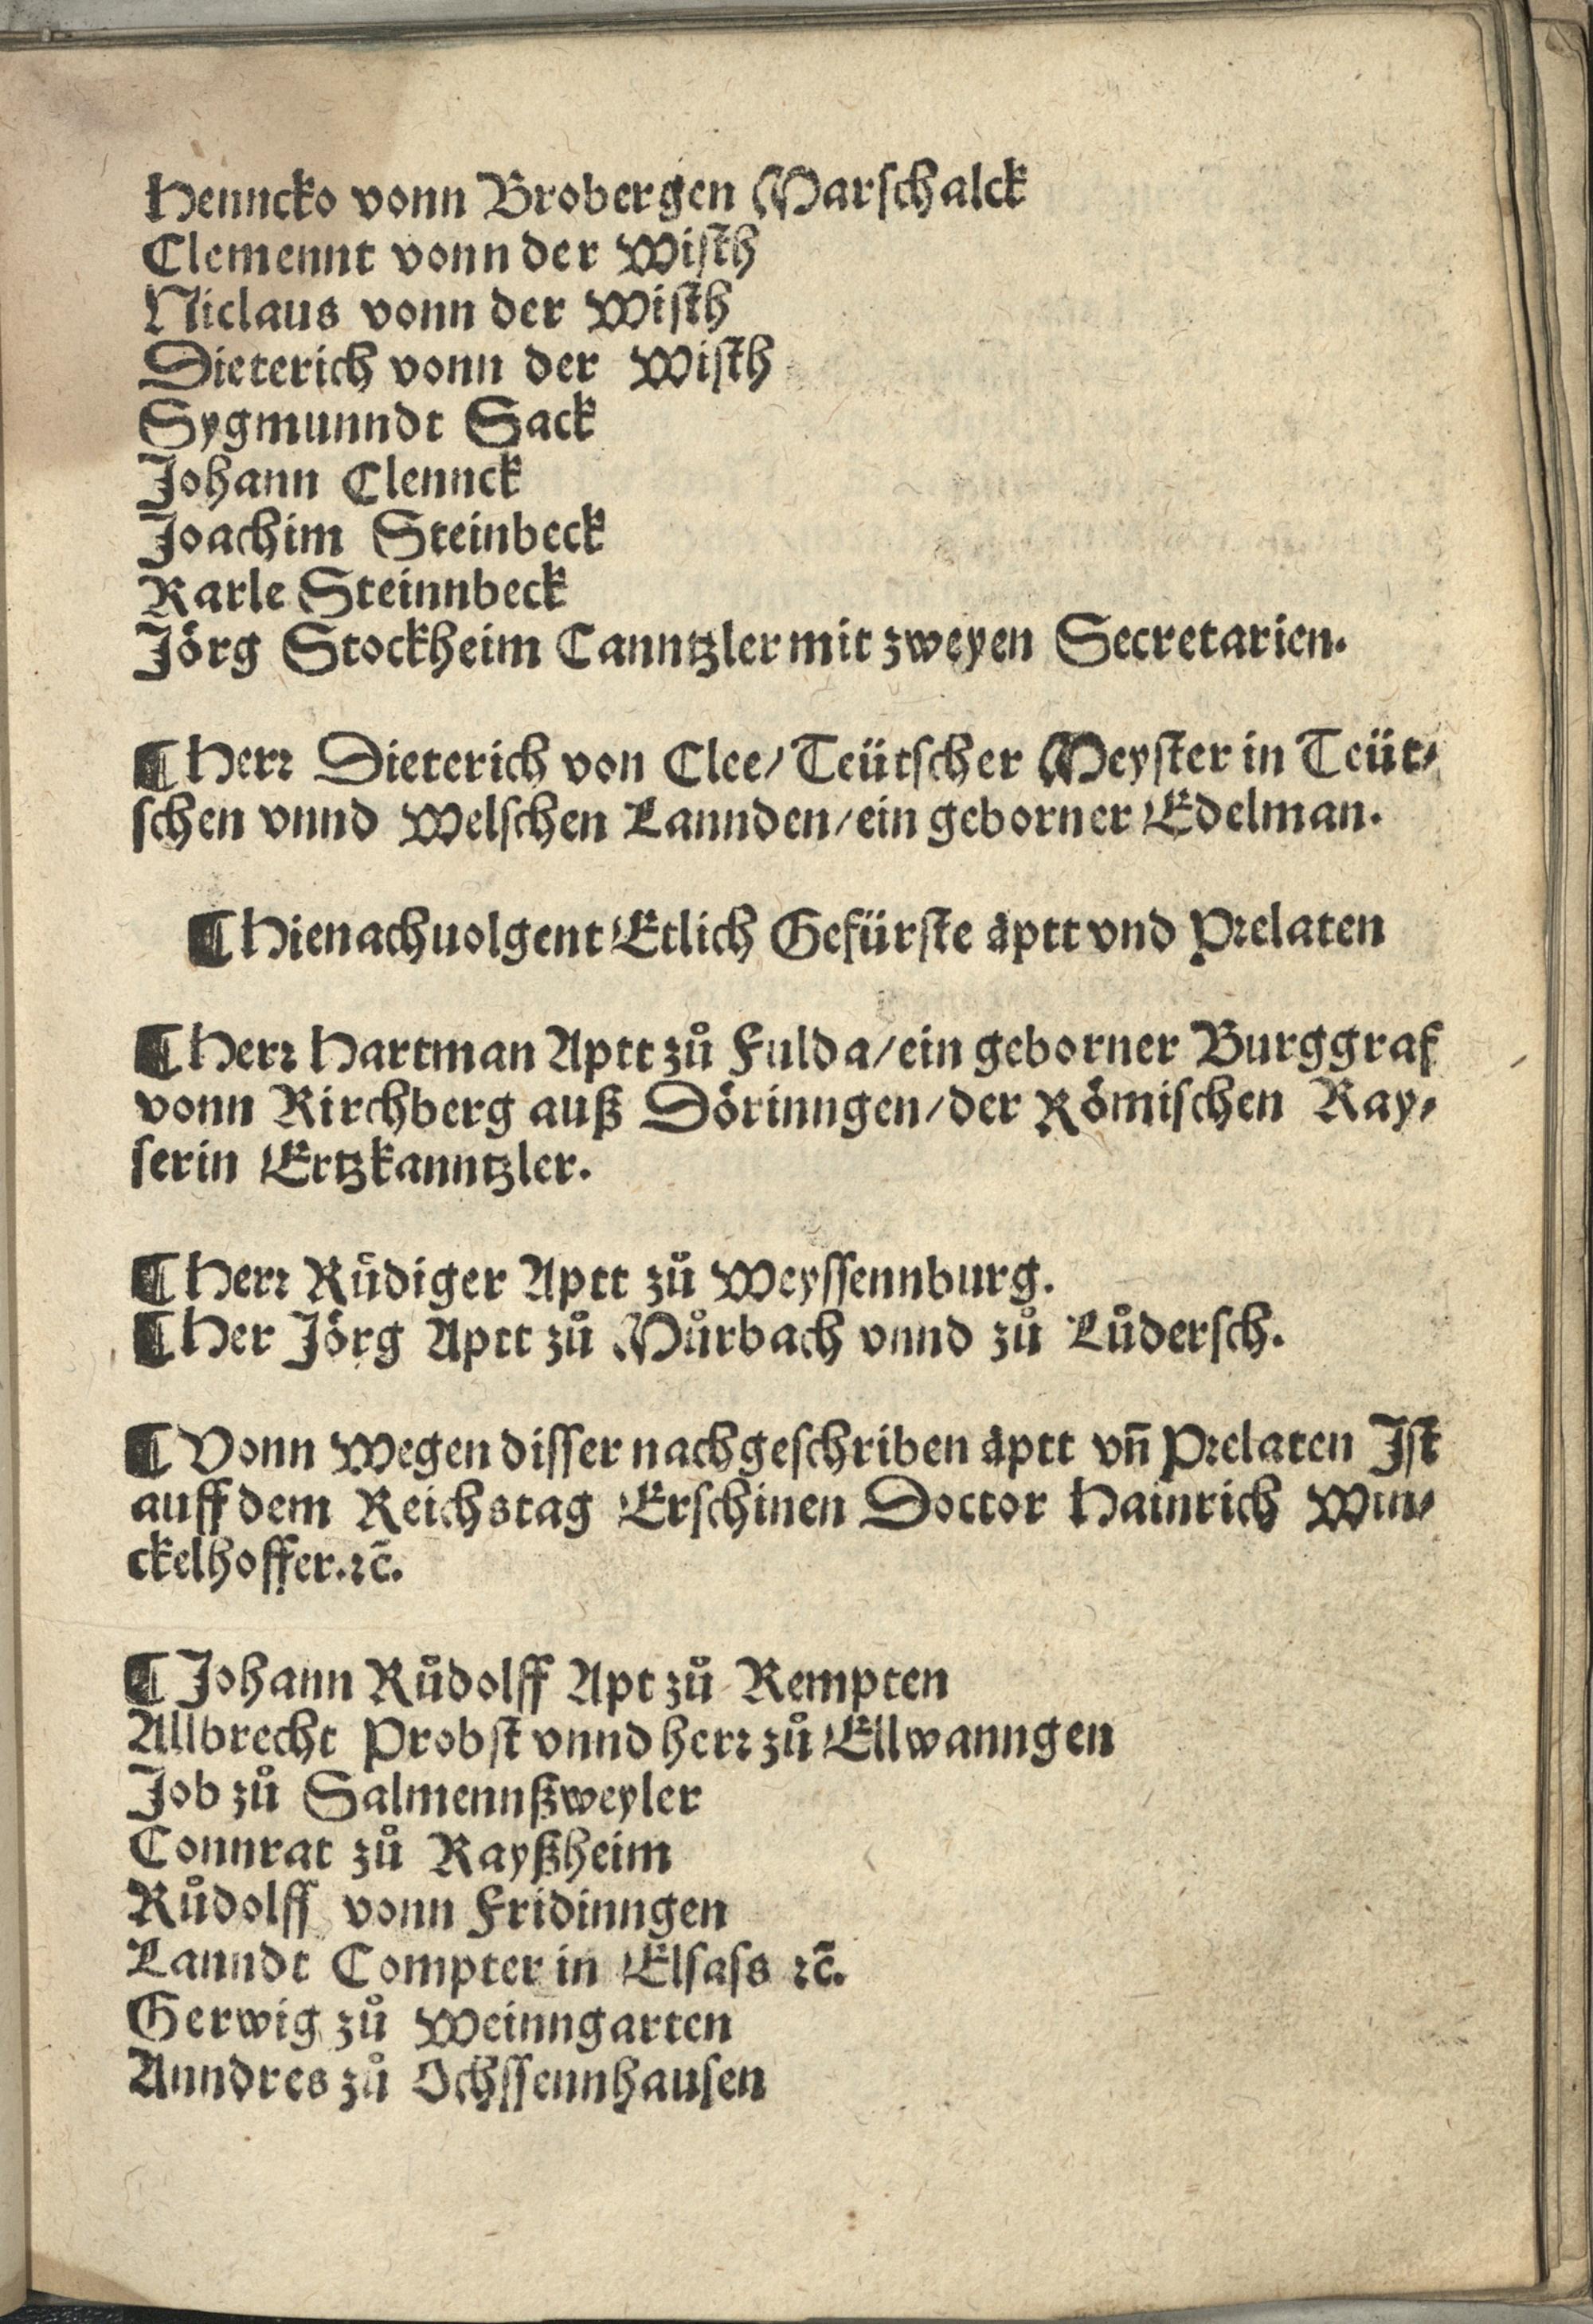 Henncko vonn Brobergen Marschalck
Clemennt vonn der Wisth
Niclaus vonn der Wisth
Dieterich vonn der Wisth
Sygmunndt Sack
Johann Clennck
Joachim Steinbeck
Karle Steinnbeck
Jörg Stockheim Canntzler mit zweyen Secretarien.
¶ Herr Dieterich von Clee/ Teütscher Meyster in Teüt⸗
schen vnnd Welschen Lannden/ ein geborner Edelman.
¶ Hienachuolgent Etlich Gefürste äptt vnd Prelaten
¶ Herr Hartman Aptt zů Fulda/ ein geborner Burggraf
vonn Kirchberg auß Dörinngen/ der Römischen Kay⸗
serin Ertzkanntzler.
¶ Herr Rüdiger Aptt zů Weyssennburg.
¶ Her Jörg Aptt zů Můrbach vnnd zů Lůdersch.
¶ Vonn wegen disser nachgeschriben äptt vn̄ Prelaten Ist
auff dem Reichstag Erschinen Doctor Hainrich Win⸗
ckelhoffer. ꝛc̄.
¶ Johann Růdolff Apt zů Kempten
Allbrecht Probst vnnd herr zů Ellwanngen
Job zů Salmennßweyler
Connrat zů Kayßheim
Růdolff vonn Fridinngen
Lanndt Compter in Elsass ꝛc̄.
Gerwig zů Weinngarten
Anndres zů Ochssennhausen